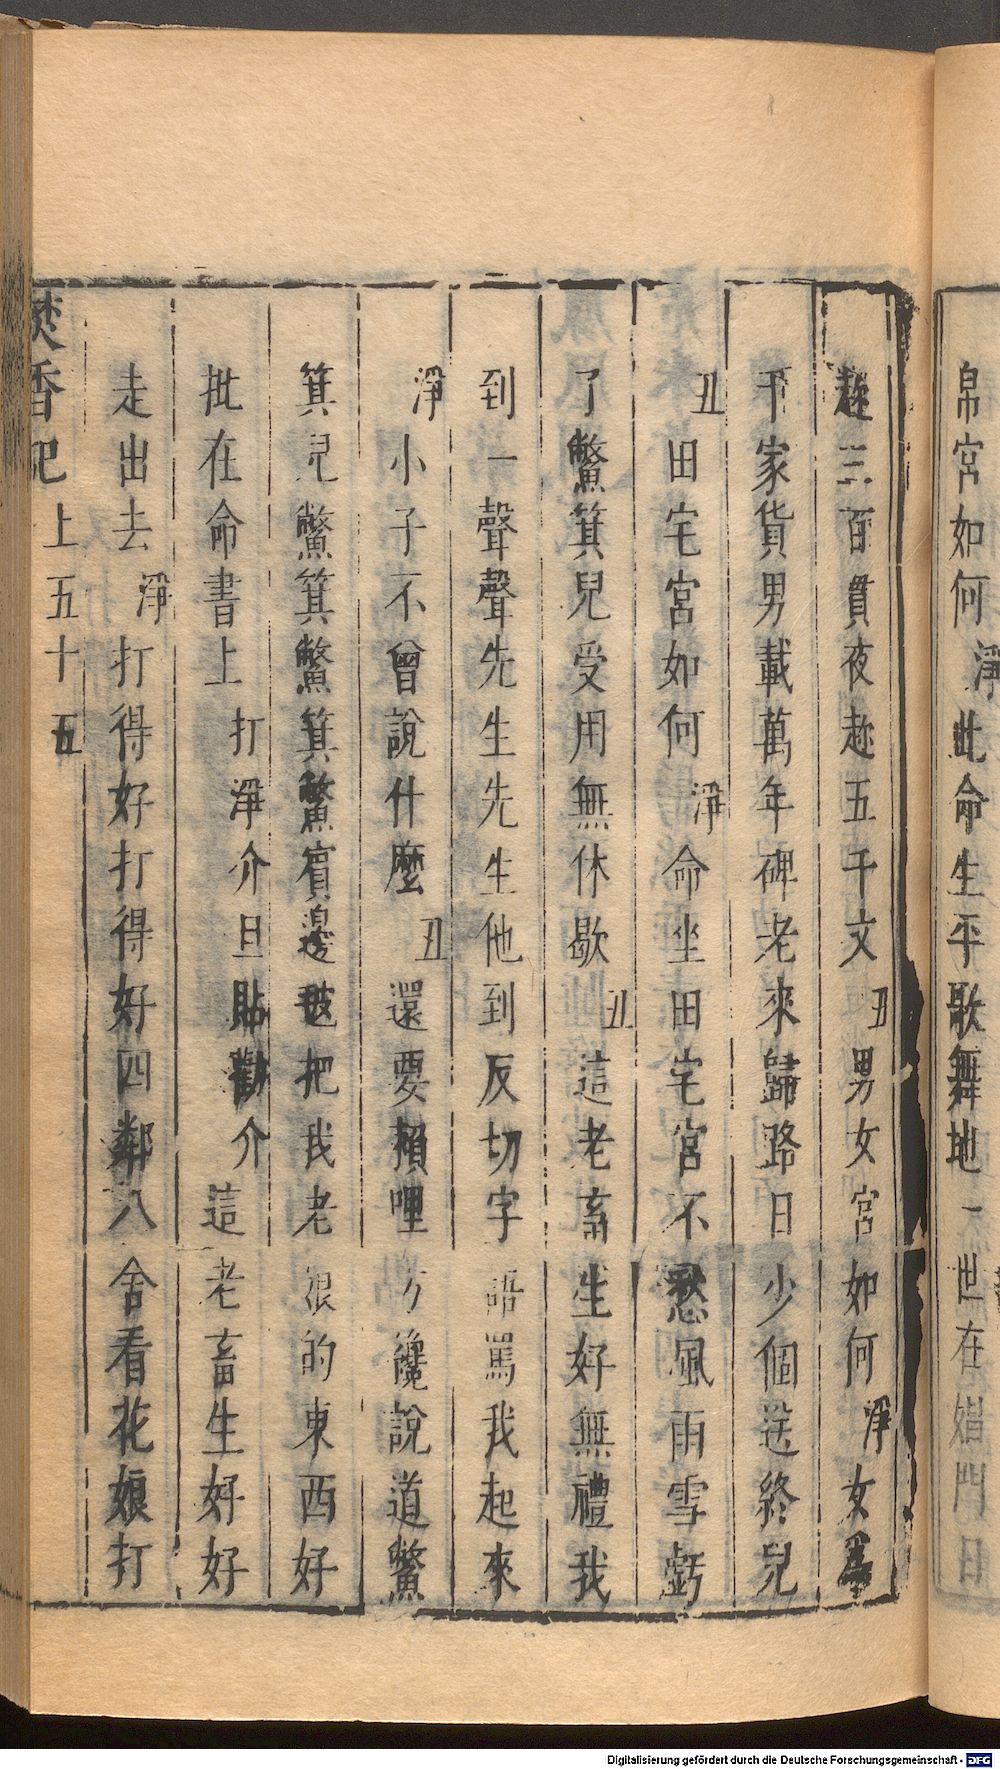 帛宮如何淨此命生平歌舞地一世在娼門日
趂三百貫夜趂五千文丑男女宮如何淨女爲
千家貨男載萬年碑老來歸路日少個送終兒
丑田宅宮如何淨命坐田宅宮不愁風雨雪虧
了鱉箕兒受用無休歇丑這老畜生好無禮我
到一聲聲先生先生他到反切字語罵我起來
淨小子不曾說什麼丑還要賴哩方纔說道鱉
箕兒鱉箕鱉箕鱉賓邊皮把我老娘的東西好
批在命書上打淨介旦貼勸介這老畜生好好
走出去淨打得好打得好四鄰八舍看花娘打
焚香記上五十五
Digitalisierung gefördert durch die Deutsche Forschungsgemeinschaft - DFG